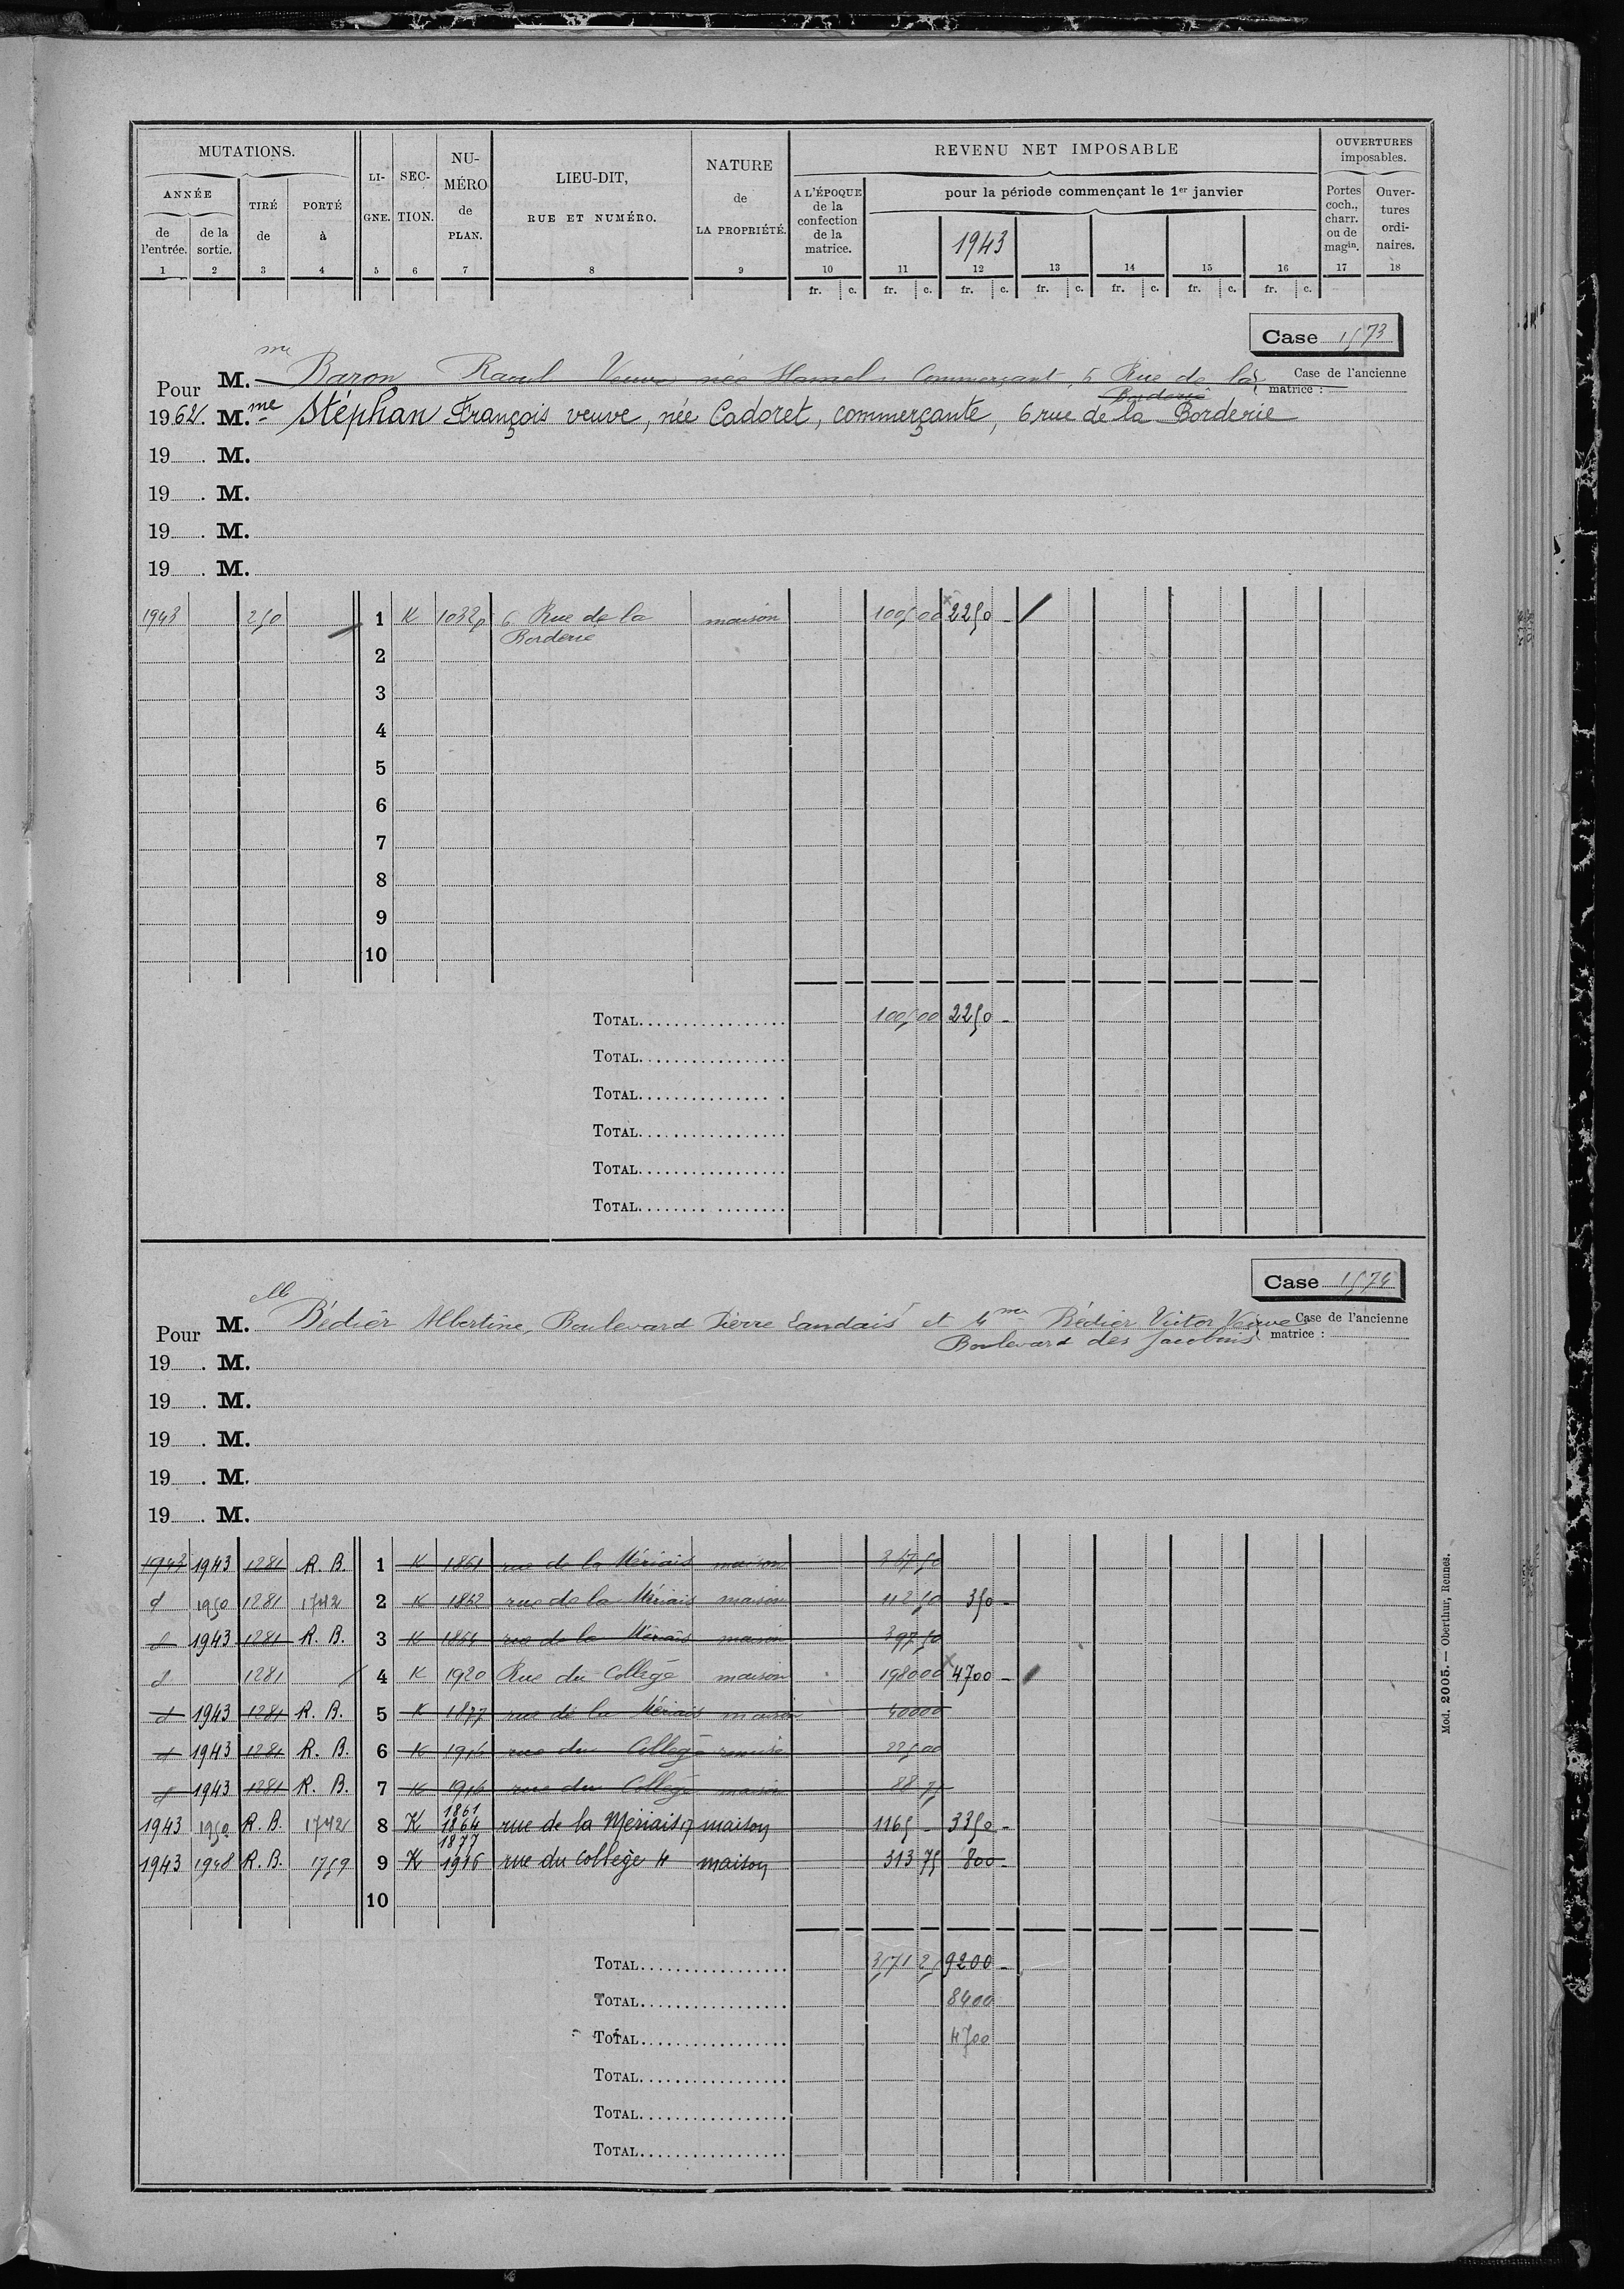 MUTATIONS.
ANNÉE
de l'entrée.
de la sortie.
TIRÉ de
PORTÉ à
LI-GNE.
SEC-TION.
NU-MÉRO de PLAN.
LIEU-DIT, RUE ET NUMÉRO.
NATURE de LA PROPRIÉTÉ.
REVENU NET IMPOSABLE
A L'ÉPOQUE de la confection de la matrice.
pour la période commençant le 1er janvier
1943
OUVERTURES imposables.
Portes coch., charr. ou de magin.
Ouver-tures ordi-naires.
1 2 3 4 5 6 7 8 9 10 11 12 13 14 15 16 17 18
fr. c. fr. c. fr. c. fr. c. fr. c. fr. c. fr. c.
Case 1573
Pour M.me Baron Raoul Veuve née Hamel Commerçant, 6 Rue de la Borderie
Case de l'ancienne matrice :
1962. M.me Stéphan François veuve, née Cadoret, commerçante, 6 rue de la Borderie
19 . M.
19 . M.
19 . M.
19 . M.
1943 250 1 K 1032p 6 Rue de la Borderie maison 1005 00 2250 -
2
3
4
5
6
7
8
9
10
TOTAL 1005 00 2250 -
TOTAL
TOTAL
TOTAL
TOTAL
TOTAL
Case 1574
Pour M.elle Bédier Albertine, Boulevard Pierre Landais et Mme Bédier Victor Veuve
Boulevard des Jacobins
Case de l'ancienne matrice :
19 . M.
19 . M.
19 . M.
19 . M.
19 . M.
1943 1943 1281 R. B. 1 K 1861 rue de la Mériais maison 367 50
d 1950 1281 1742 2 K 1862 rue de la Mériais maison 112 50 350 -
d 1943 1281 R. B. 3 K 1864 rue de la Mériais maison 397 50
d 1281 4 K 1920 Rue du Collège maison 1980 00 4700 -
d 1943 1281 R. B. 5 K 1877 rue de la Mériais maison 400 00
d 1943 1281 R. B. 6 K rue du Collège remise 225 00
d 1943 1281 R. B. 7 K 1916 rue du Collège maison 88 75
1943 1950 R. B. 1742 8 K 1861 1864 1877 rue de la Mériais 17 maison 1165 - 3350 -
1943 1948 R. B. 1759 9 K 1916 rue du collège 4 maison 313 75 800 -
10
TOTAL 3571 25 9200 -
TOTAL 8400
TOTAL 4700
TOTAL
TOTAL
TOTAL
Mod. 2005. — Oberthur, Rennes.